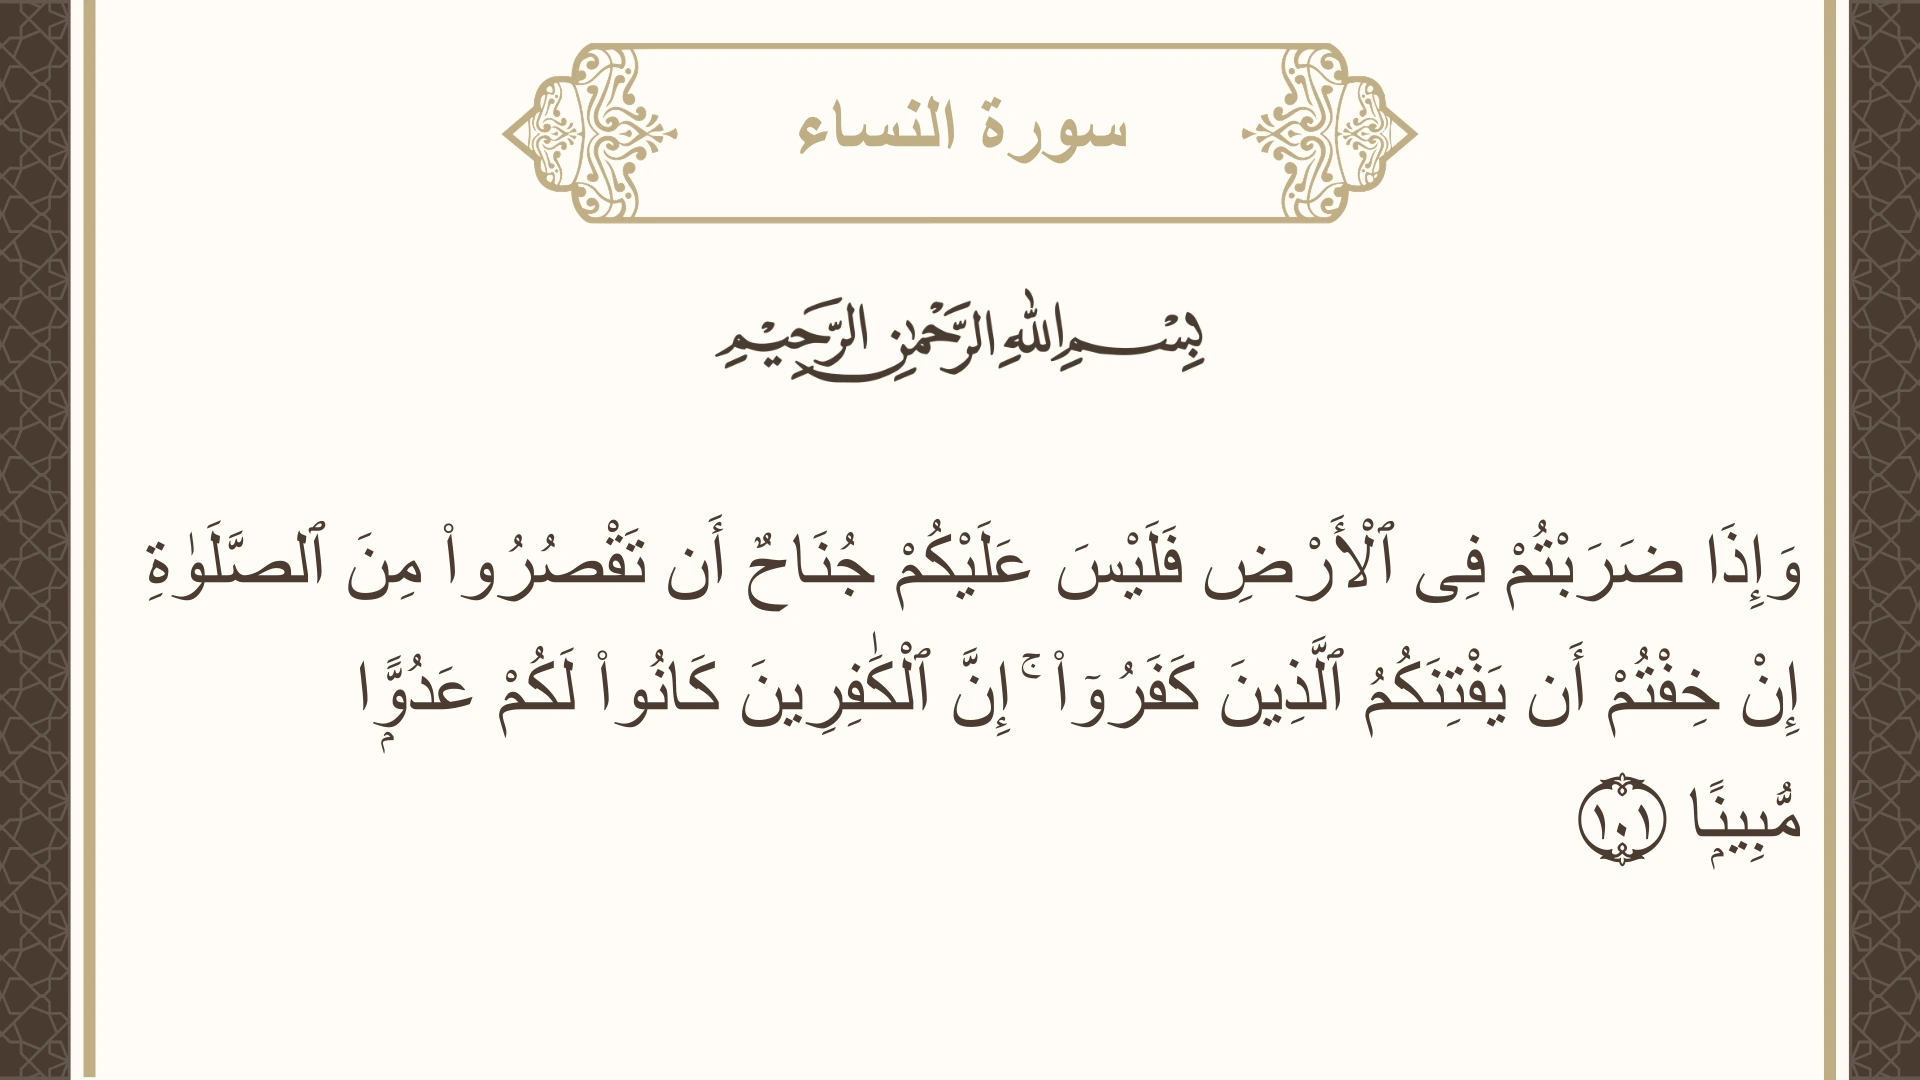 سورة النساء
بِسْمِ اللهِ الرَّحْمٰنِ الرَّحِيْمِ
وَإِذَا ضَرَبْتُمْ فِى ٱلْأَرْضِ فَلَيْسَ عَلَيْكُمْ جُنَاحٌ أَن تَقْصُرُوا۟ مِنَ ٱلصَّلَوٰةِ
إِنْ خِفْتُمْ أَن يَفْتِنَكُمُ ٱلَّذِينَ كَفَرُوٓا۟ ۚ إِنَّ ٱلْكَٰفِرِينَ كَانُوا۟ لَكُمْ عَدُوًّۭا
مُّبِينًۭا ١٠١